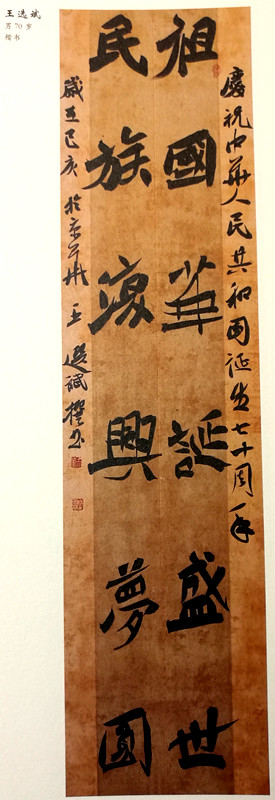 王选斌
男 70岁
楷书
慶祝中華人民共和国诞生七十周年
祖國華誕盛世
民族復興夢圓
歲在己亥 於京 王選斌 書